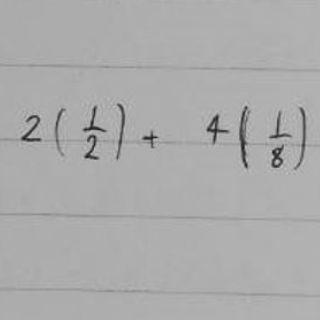 2 (1/2) + 4 (1/8)